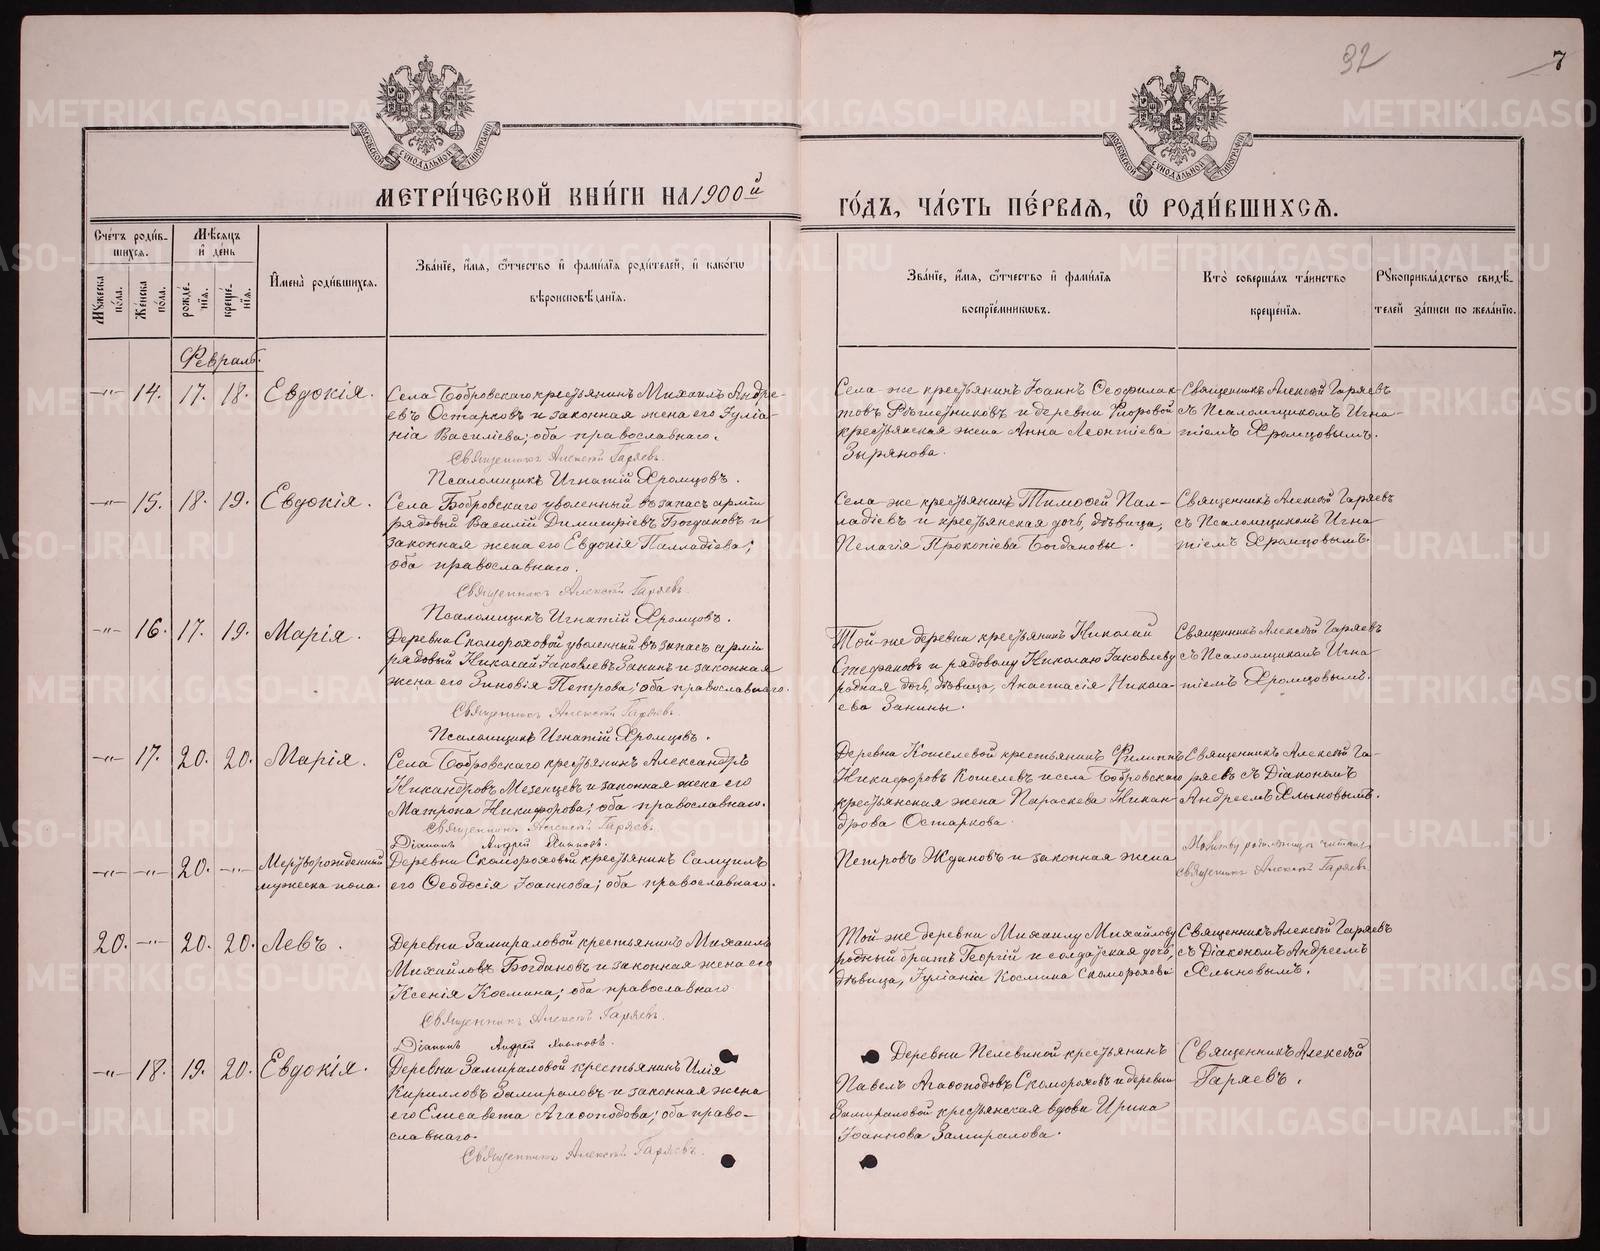 32
7
МОСКОВСКОЙ СУНОДАЛЬНОЙ ТИПОГРАФІИ
МОСКОВСКОЙ СУНОДАЛЬНОЙ ТИПОГРАФІИ
МЕТРИ́ЧЕСКОЙ КНИ́ГИ НА 1900й
ГО́ДЪ, ЧА́СТЬ ПЕ́РВАЯ, Ѡ҆ РОДИ́ВШИХСЯ.
Сче́тъ роди́в-
шихся.
Мѣ́сяцъ
и҆ де́нь
Му́жеска по́ла.
Же́нска по́ла.
рожде́-
нїя.
креще́-
нїя.
И҆мена̀ роди́вшихся.
Зва́нїе, и҆́мя, ѻ҆́тчество и҆ фами́лїя роди́телей, и҆ како́гѡ
вѣроисповѣ́данїя.
Зва́нїе, и҆́мя, ѻ҆́тчество и҆ фами́лїя
воспрїе́мниковъ.
Кто̀ соверша́лъ та́инство
креще́нїя.
Рꙋкоприкла́дство свидѣ́-
телей за́писи по жела́нїю.
Февраль.
-"- 14. 17. 18. Евдокія.
Села Бобровскаго крестьянинъ Михаилъ Андре-
евъ Остарковъ и законная жена его Іуліа-
нія Василіева; оба православнаго.
Священникъ Алексѣй Гаряевъ.
Псаломщикъ Игнатій Хромцовъ.
Села же крестьянинъ Іоаннъ Ѳеофилак-
товъ Рѣшетниковъ и деревни
крестьянская жена Анна Леонтіева
Зырянова.
Священникъ Алексѣй Гаряевъ
съ Псаломщикомъ Игна-
тіемъ Хромцовымъ.
-"- 15. 18. 19. Евдокія.
Села Бобровскаго уволенный въ запасъ арміи
рядовый Василій Димитріевъ Богдановъ и
законная жена его Евдокія Палладіева;
оба православнаго.
Священникъ Алексѣй Гаряевъ.
Псаломщикъ Игнатій Хромцовъ.
Села же крестьянинъ Тимофей Пал-
ладіевъ и крестьянская дочь, дѣвица,
Пелагія Прокопіева Богдановы.
Священникъ Алексѣй Гаряевъ
съ Псаломщикомъ Игна-
тіемъ Хромцовымъ.
-"- 16. 17. 19. Марія.
Деревни Скомороховой уволенный въ запасъ арміи
рядовый Николай Іаковлевъ Занинъ и законная
жена его Зиновія Петрова; оба православнаго.
Священникъ Алексѣй Гаряевъ.
Псаломщикъ Игнатій Хромцовъ.
Той же деревни крестьянинъ Николай
Стефановъ и рядовому Николаю Іаковлеву
родная дочь, дѣвица, Анастасія Никола-
ева Занины.
Священникъ Алексѣй Гаряевъ
съ Псаломщикомъ Игна-
тіемъ Хромцовымъ.
-"- 17. 20. 20. Марія.
Села Бобровскаго крестьянинъ Александръ
Никандровъ Мезенцевъ и законная жена его
Матрона Никифорова; оба православнаго.
Священникъ Алексѣй Гаряевъ.
Діаконъ Андрей Хлыновъ.
Деревни Кошелевой крестьянинъ Филиппъ
Никифоровъ Кошелевъ и села Бобровскаго
крестьянская жена Параскева Никан-
дрова Остаркова.
Священникъ Алексѣй Га-
ряевъ съ Діакономъ
Андреемъ Хлыновымъ.
-"- -"- 20. -"- Мертворожденный
мужеска пола.
Деревни Скомороховой крестьянинъ Самуилъ
его Ѳеодосія Іоаннова; оба православнаго.
Петровъ Ждановъ и законная жена
Молитву родильницѣ читалъ
священникъ Алексѣй Гаряевъ.
20. -"- 20. 20. Левъ.
Деревни Замираловой крестьянинъ Михаилъ
Михайловъ Богдановъ и законная жена его
Ксенія Космина; оба православнаго.
Священникъ Алексѣй Гаряевъ.
Діаконъ Андрей Хлыновъ.
Той же деревни Михаилу Михайлову
родный братъ Георгій и солдатская дочь,
дѣвица, Іуліанія Космина Скоморохова.
Священникъ Алексѣй Гаряевъ
съ Діакономъ Андреемъ
Хлыновымъ.
-"- 18. 19. 20. Евдокія.
Деревни Замираловой крестьянинъ Илія
Кирилловъ Замираловъ и законная жена
его Елисавета Агаѳоподова; оба право-
славнаго.
Священникъ Алексѣй Гаряевъ.
Деревни Пелевиной крестьянинъ
Павелъ Агаѳоподовъ Скомороховъ и деревни
Замираловой крестьянская вдова Ирина
Іоаннова Замиралова.
Священникъ Алексѣй
Гаряевъ.
METRIKI.GASO-URAL.RU